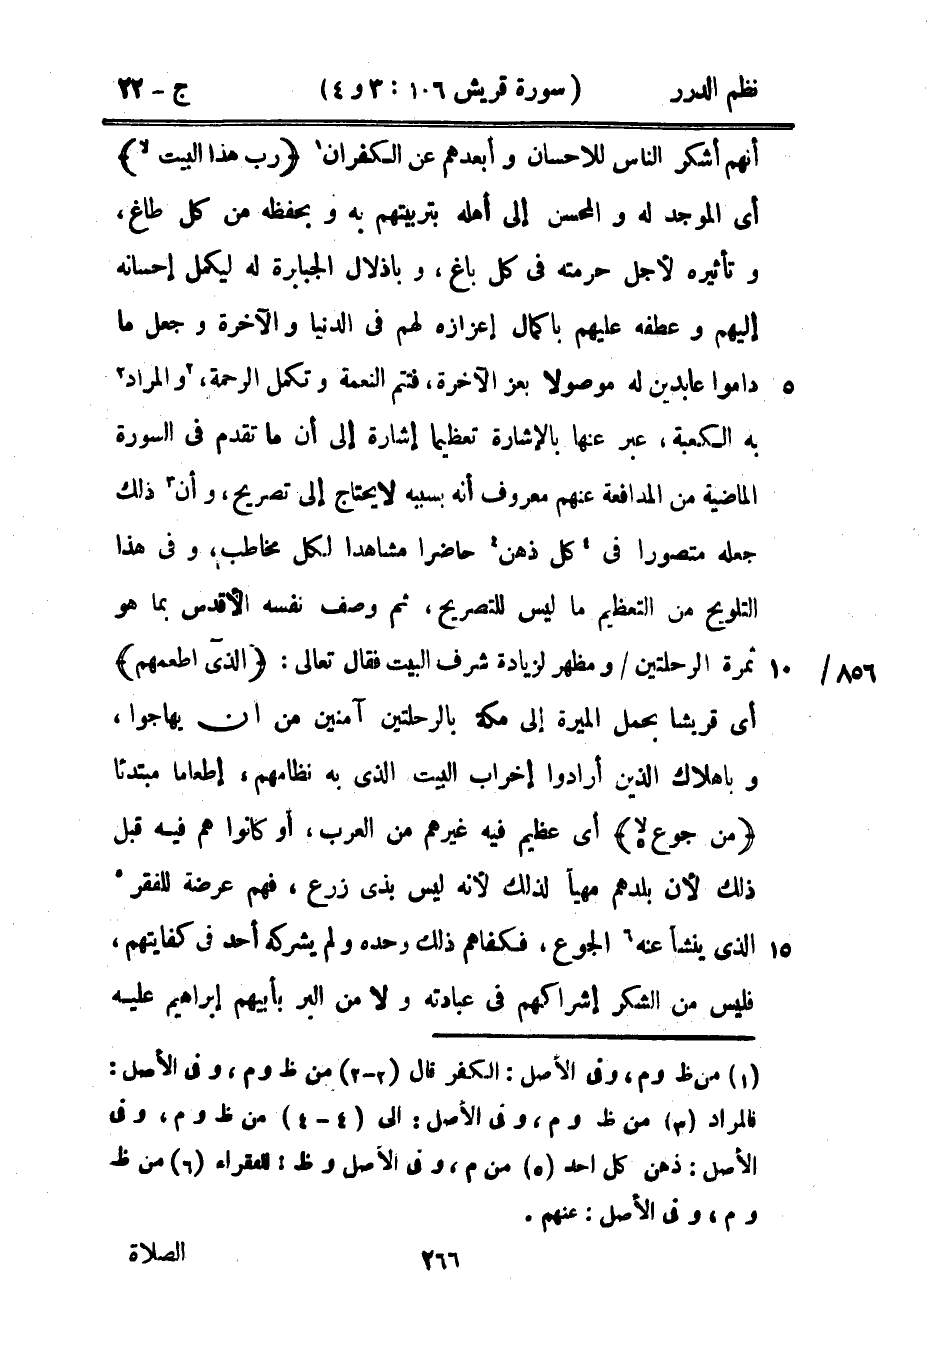 نظم الدرر ( سورة قريش ١٠٦ : ٣ و ٤ ) ج - ٢٢
أنهم أشكر الناس للاحسان و أبعدهم عن الكفران١ ﴿ رب هذا البيت لا ﴾
أى الموجد له و المحسن إلى أهله بتربيتهم به و بحفظه من كل طاغ،
و تأثيره لأجل حرمته فى كل باغ، و باذلال الجبابرة له ليكمل إحسانه
إليهم و عطفه عليهم باكمال إعزازه لهم فى الدنيا و الآخرة و جعل ما
٥ داموا عابدين له موصولا بعز الآخرة، فتتم النعمة و تكمل الرحمة، ٢و المراد٢
به الكعبة، عبر عنها بالإشارة تعظيما إشارة إلى أن ما تقدم فى السورة
الماضية من المدافعة عنهم معروف أنه بسببه لايحتاج إلى تصريح، و أن٣ ذلك
جعله متصورا فى ٤كل ذهن٤ حاضرا مشاهدا لكل مخاطب، و فى هذا
التلويح من التعظيم ما ليس للتصريح، ثم وصف نفسه الأقدس بما هو
٨٥٦ / ١٠ ثمرة الرحلتين / و مظهر لزيادة شرف البيت فقال تعالى : ﴿ الذىٓ اطعمهم ﴾
أى قريشا بحمل الميرة إلى مكة بالرحلتين آمنين من أن يهاجوا،
و باهلاك الذين أرادوا إخراب البيت الذى به نظامهم، إطعاما مبتدئا
﴿ من جوع لا ٥ ﴾ أى عظيم فيه غيرهم من العرب، أو كانوا هم فيه قبل
ذلك لأن بلدهم مهيأ لذلك لأنه ليس بذى زرع، فهم عرضة للفقر٥
١٥ الذى ينشأ عنه٦ الجوع، فكفاهم ذلك وحده و لم يشركه أحد فى كفايتهم،
فليس من الشكر إشراكهم فى عبادته و لا من البر بأبيهم إبراهيم عليه
(١) من ظ و م، و فى الأصل : الكفر قال (٢-٢) من ظ و م، و فى الأصل :
فالمراد (٣) من ظ و م، و فى الأصل : الى (٤ - ٤) من ظ و م، و فى
الأصل : ذهن كل احد (٥) من م، و فى الأصل و ظ : للفقراء (٦) من ظ
و م، و فى الأصل : عنهم .
٢٦٦ الصلاة